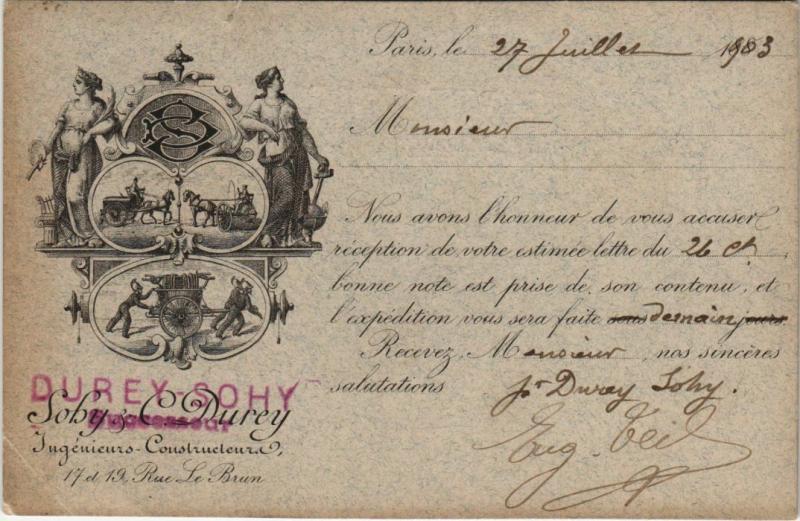 Paris, le 27 Juillet 1903
Monsieur
Nous avons l'honneur de vous accuser
réception de votre estimée lettre du 26 ct.
bonne note est prise de son contenu, et
l'expédition vous sera faite sous demain jours
Recevez, Monsieur, nos sincères
salutations
pr Durey Sohy.
Eug.
DUREY-SOHY
Sohy & Cie Durey
Successeur
Ingénieurs-Constructeurs,
17 et 19, Rue Le Brun